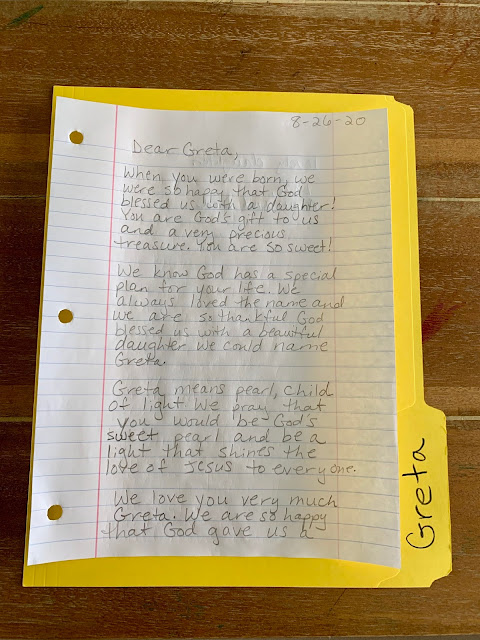 8-26-20
Dear Greta,
When you were born, we
were so happy that God
blessed us with a daughter!
You are God's gift to us
and a very precious
treasure. You are so sweet!
We know God has a special
plan for your life. We
always loved the name and
we are so thankful God
blessed us with a beautiful
daughter we could name
Greta.
Greta means pearl, child
of light. We pray that
you would be God's
sweet pearl and be a
light that shines the
love of Jesus to everyone.
We love you very much
Greta. We are so happy
that God gave us a
Greta